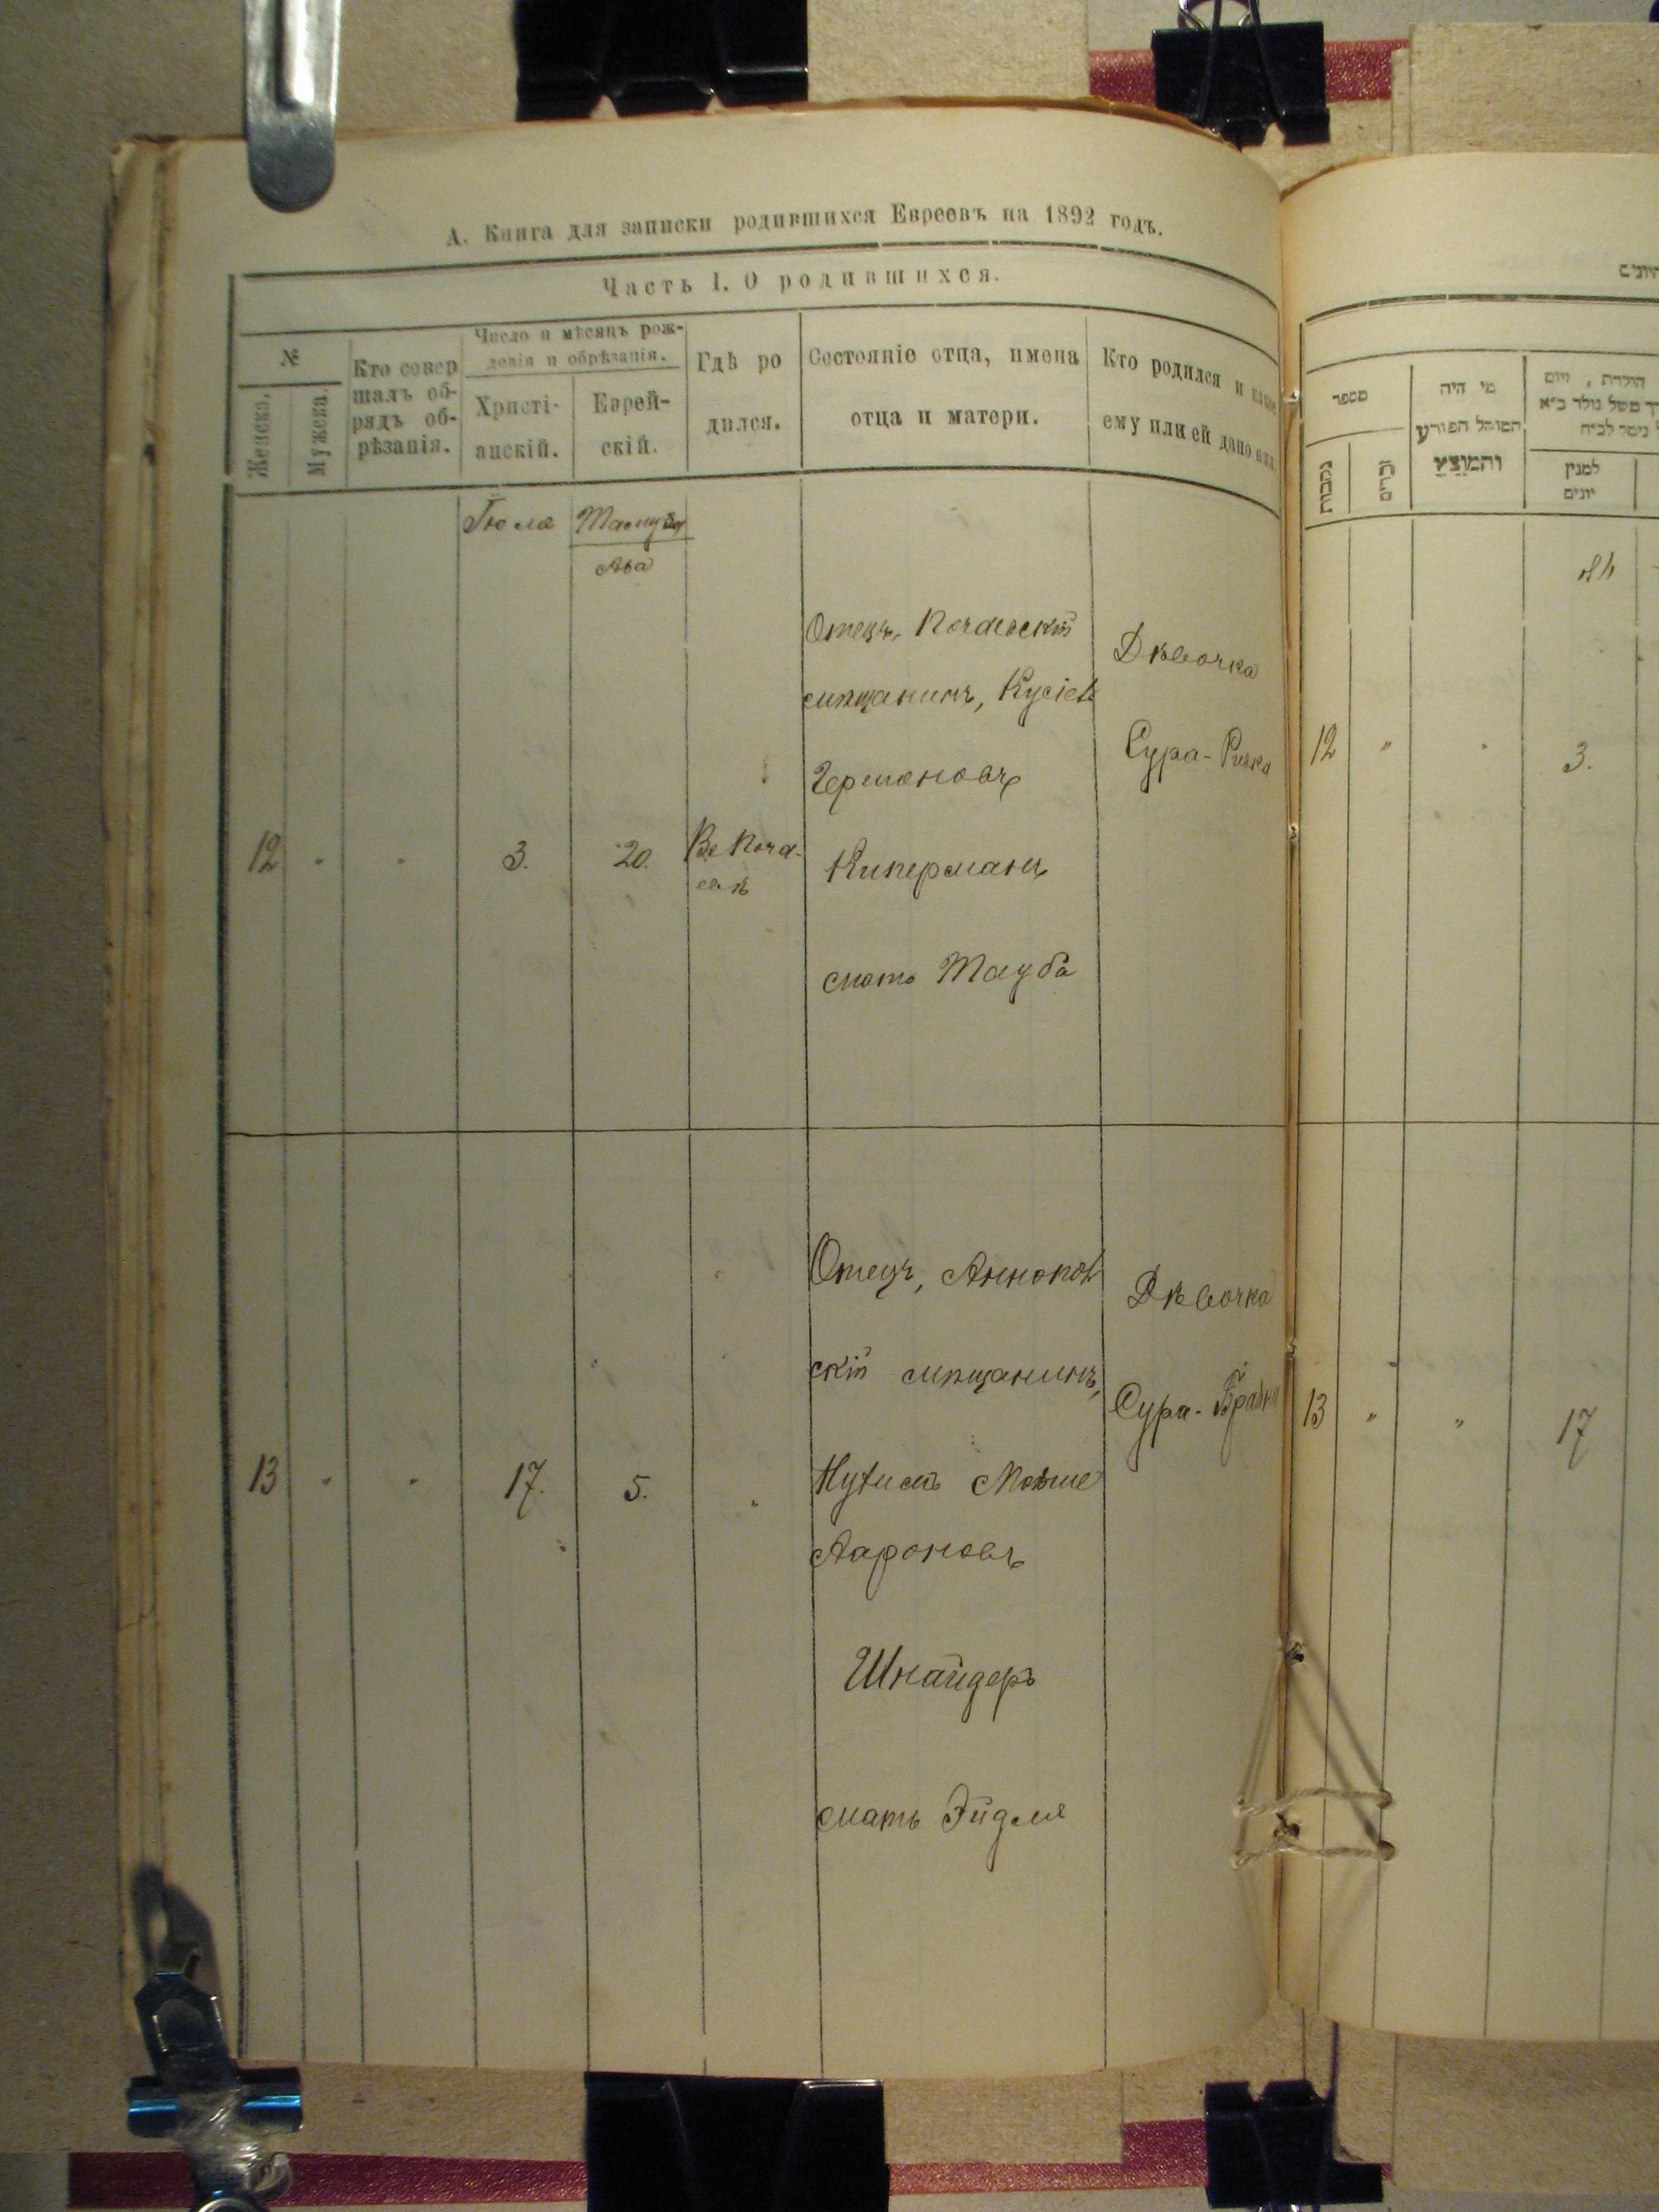 А. Книга для записки родившихся Евреевъ на 1892 годъ.
Часть I. О родившихся.
№
Женска.
Мужеска.
Кто совер
шалъ об-
рядъ об-
рѣзанія.
Число и мѣсяцъ рож-
денія и обрѣзанія.
Христі-
анскій.
Еврей-
скій.
Гдѣ ро
дился.
Состояніе отца, имена
отца и матери.
Кто родился и какое
ему или ей дано имя.
Іюля
Тамуза
Ава
12
3.
20.
Въ Поча-
евѣ
Отецъ, Почаевскій
мѣщанинъ, Кусіев
Германовъ
Киперманъ
мать Тауба
Дѣвочка
Сура-
13
17.
5.
Отецъ, Аннопов
скій мѣщанинъ,
Мовше
Аароновъ
Шнайдеръ
мать Эйдля
Дѣвочка
Сура-
מספר
נקבות
זכרים
מי היה
המוהל הפורע
והמוצץ
הולדת , ויום
למנין
יונים
12
3.
13
17